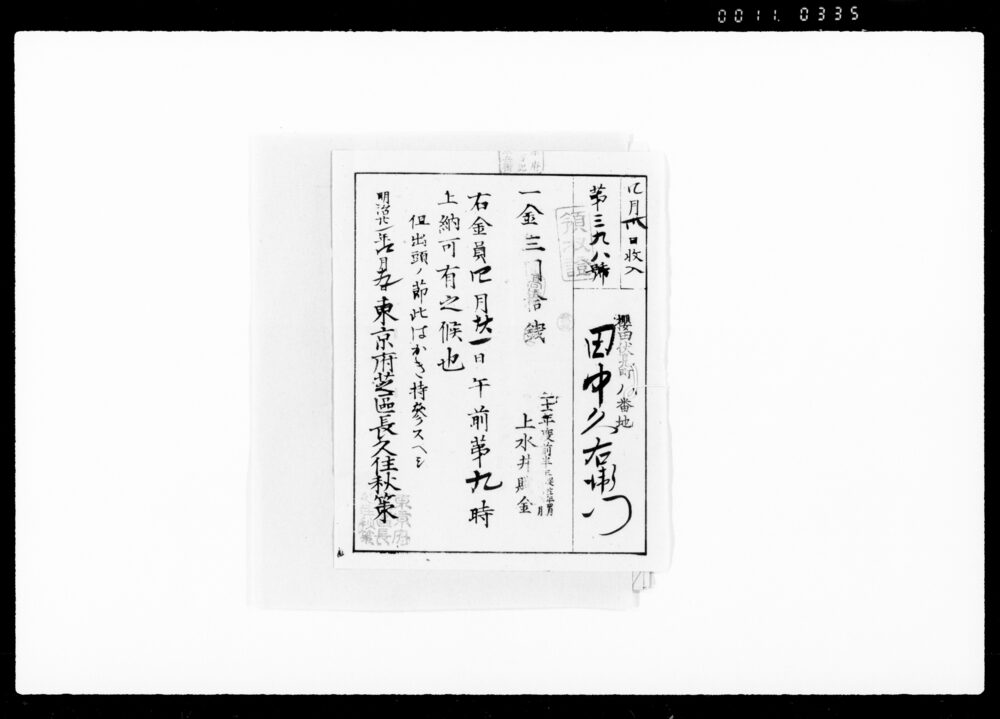 0011. 0335
月 日収入
第三九八號
領收證
櫻田伏見町 番地
田中久右衛門
一金三円 拾銭
二十一年度前半
上水井賦金
右金員四月廿一日午前第九時
上納可有之候也
但出頭ノ節此はがき持參スヘシ
明治廿一年四月 日 東京府芝區長久住秋策
東京府
區長